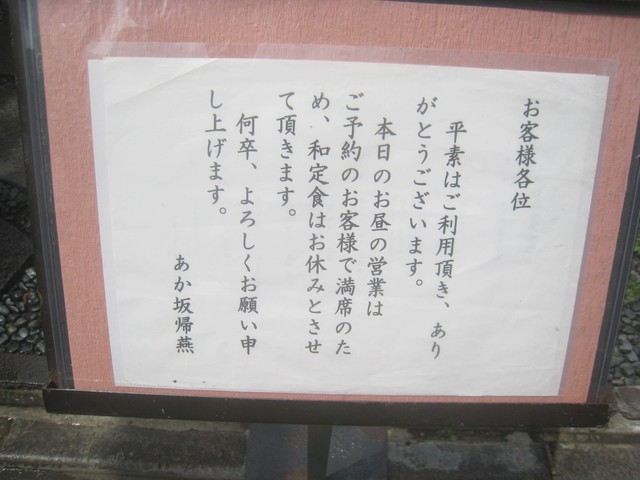 お客様各位
平素はご利用頂き、あり
がとうございます。
本日のお昼の営業は
ご予約のお客様で満席のた
め、和定食はお休みとさせ
て頂きます。
何卒、よろしくお願い申
し上げます。
あか坂帰燕